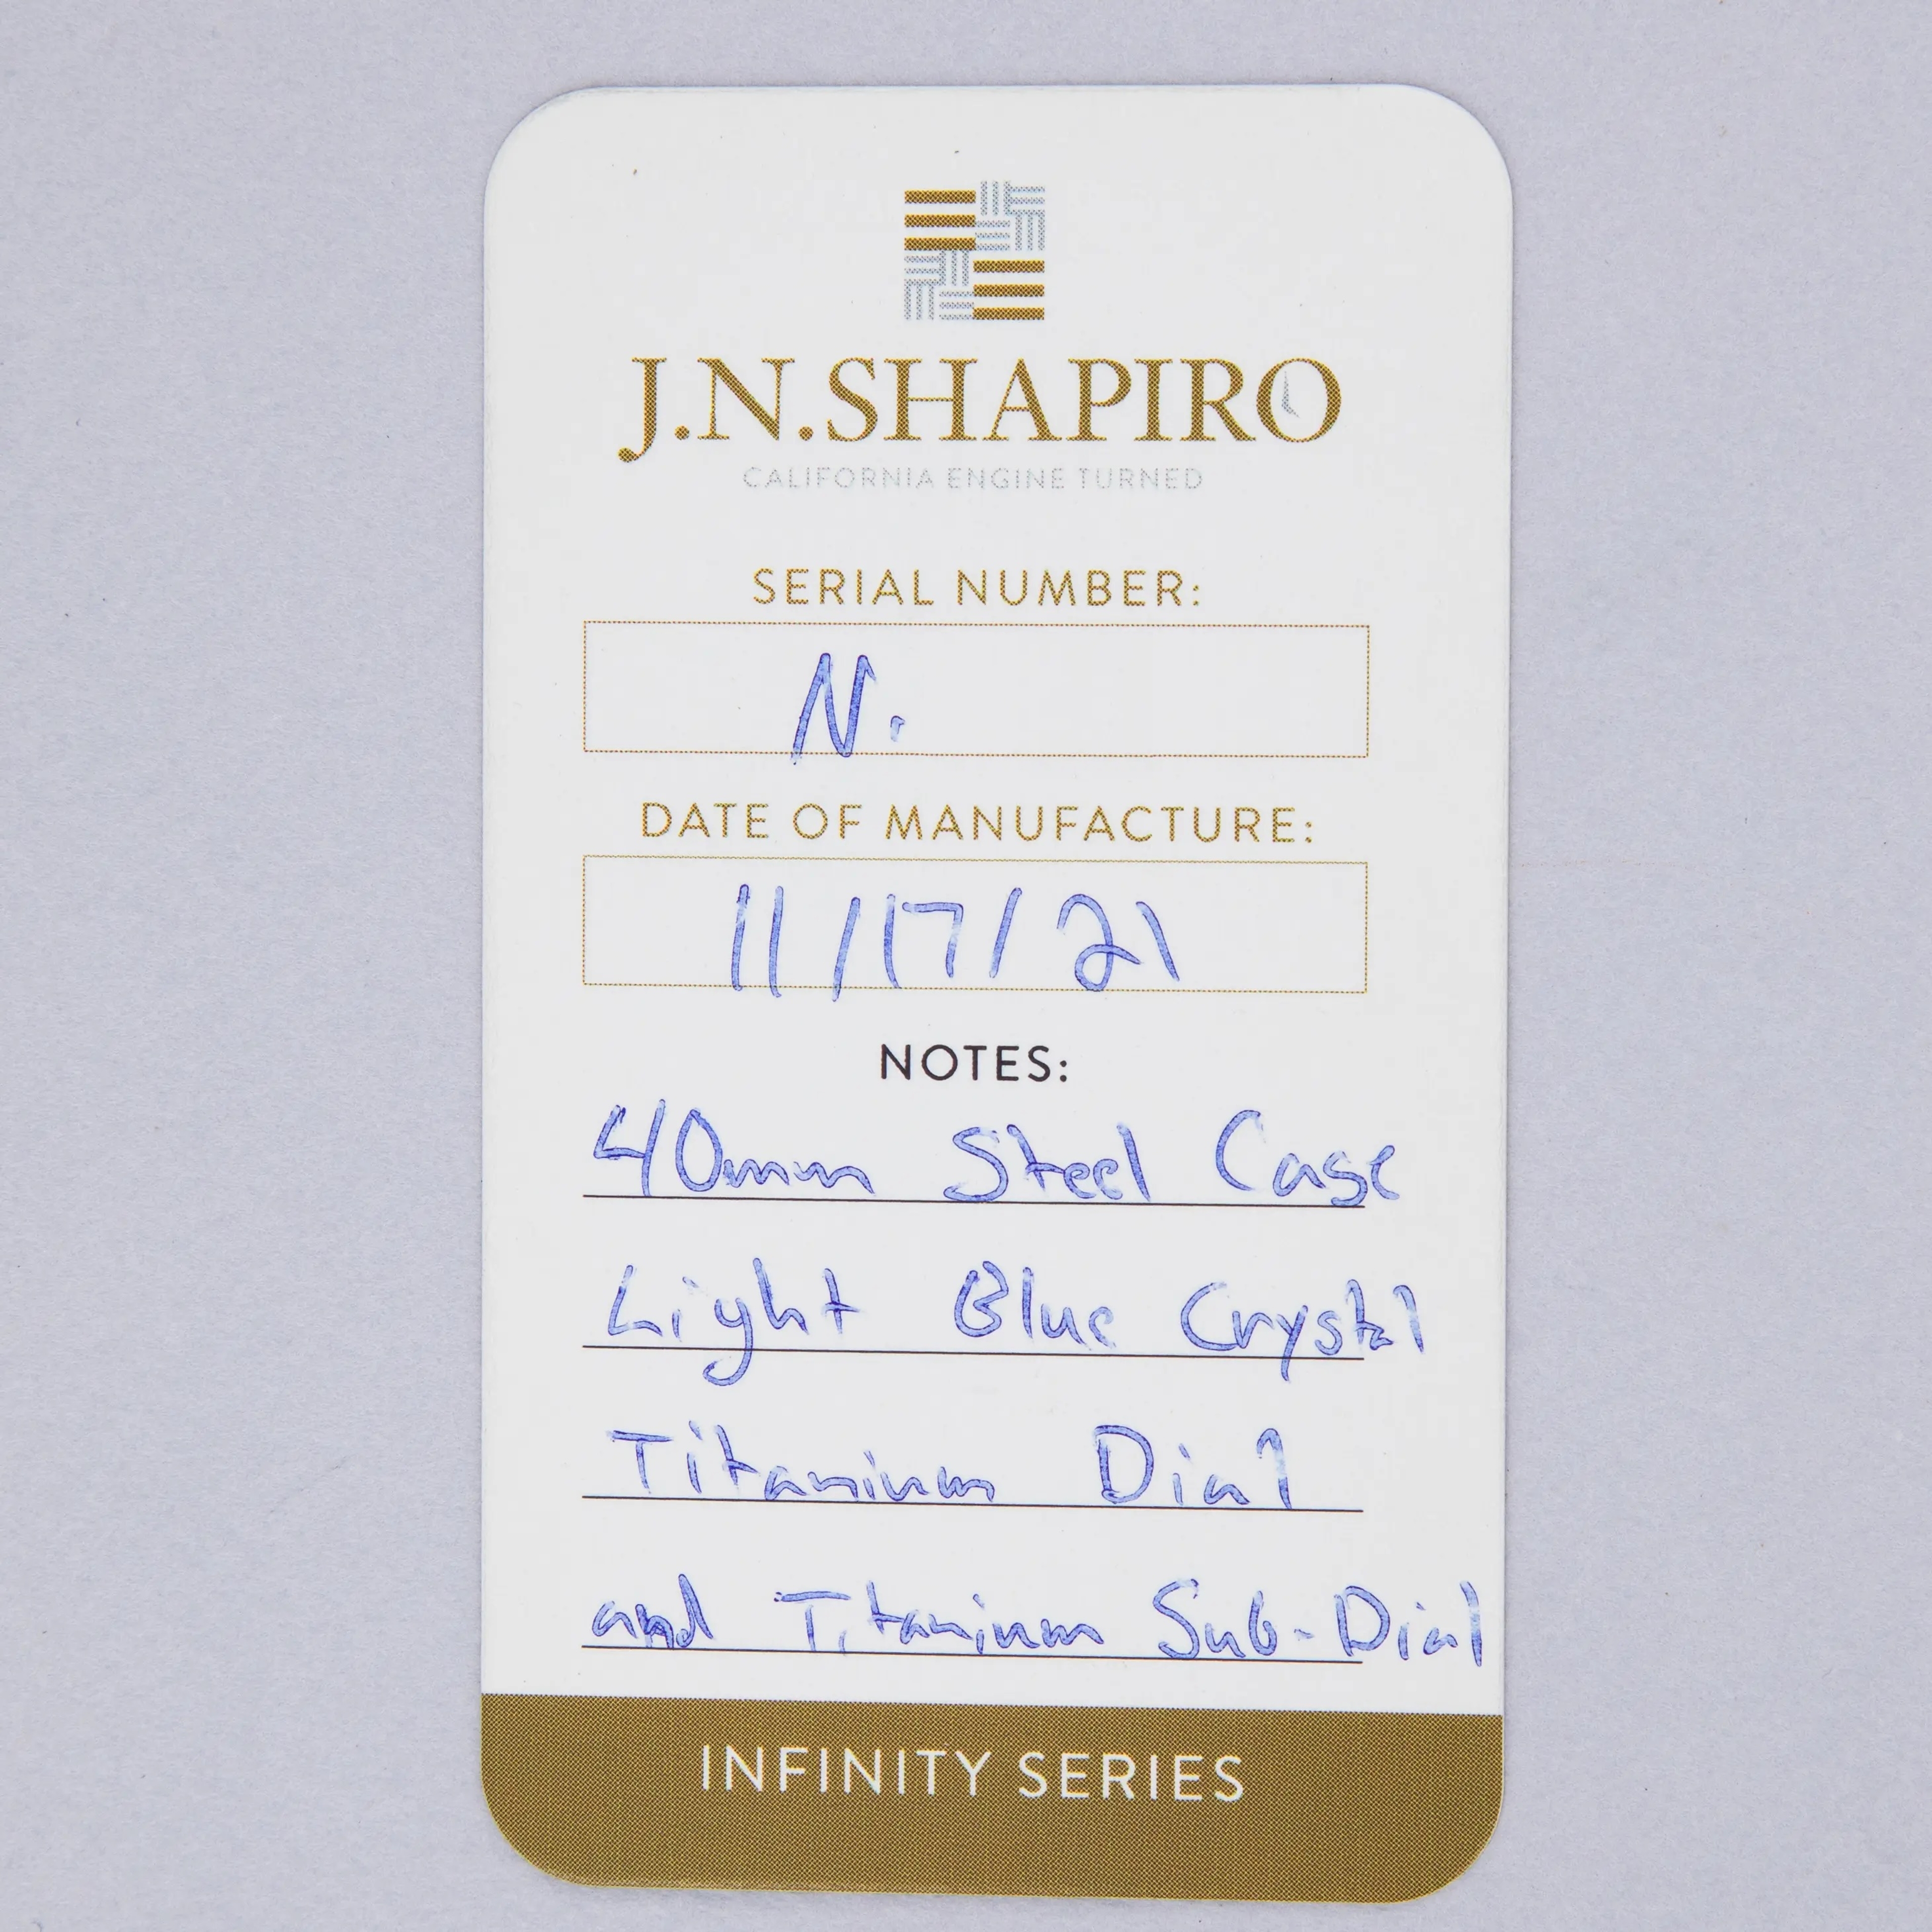 J.N.SHAPIRO
CALIFORNIA ENGINE TURNED
SERIAL NUMBER:
N.
DATE OF MANUFACTURE:
11/17/21
NOTES:
40mm Steel Case
Light Blue Crystal
Titanium Dial
and Titanium Sub-Dial
INFINITY SERIES